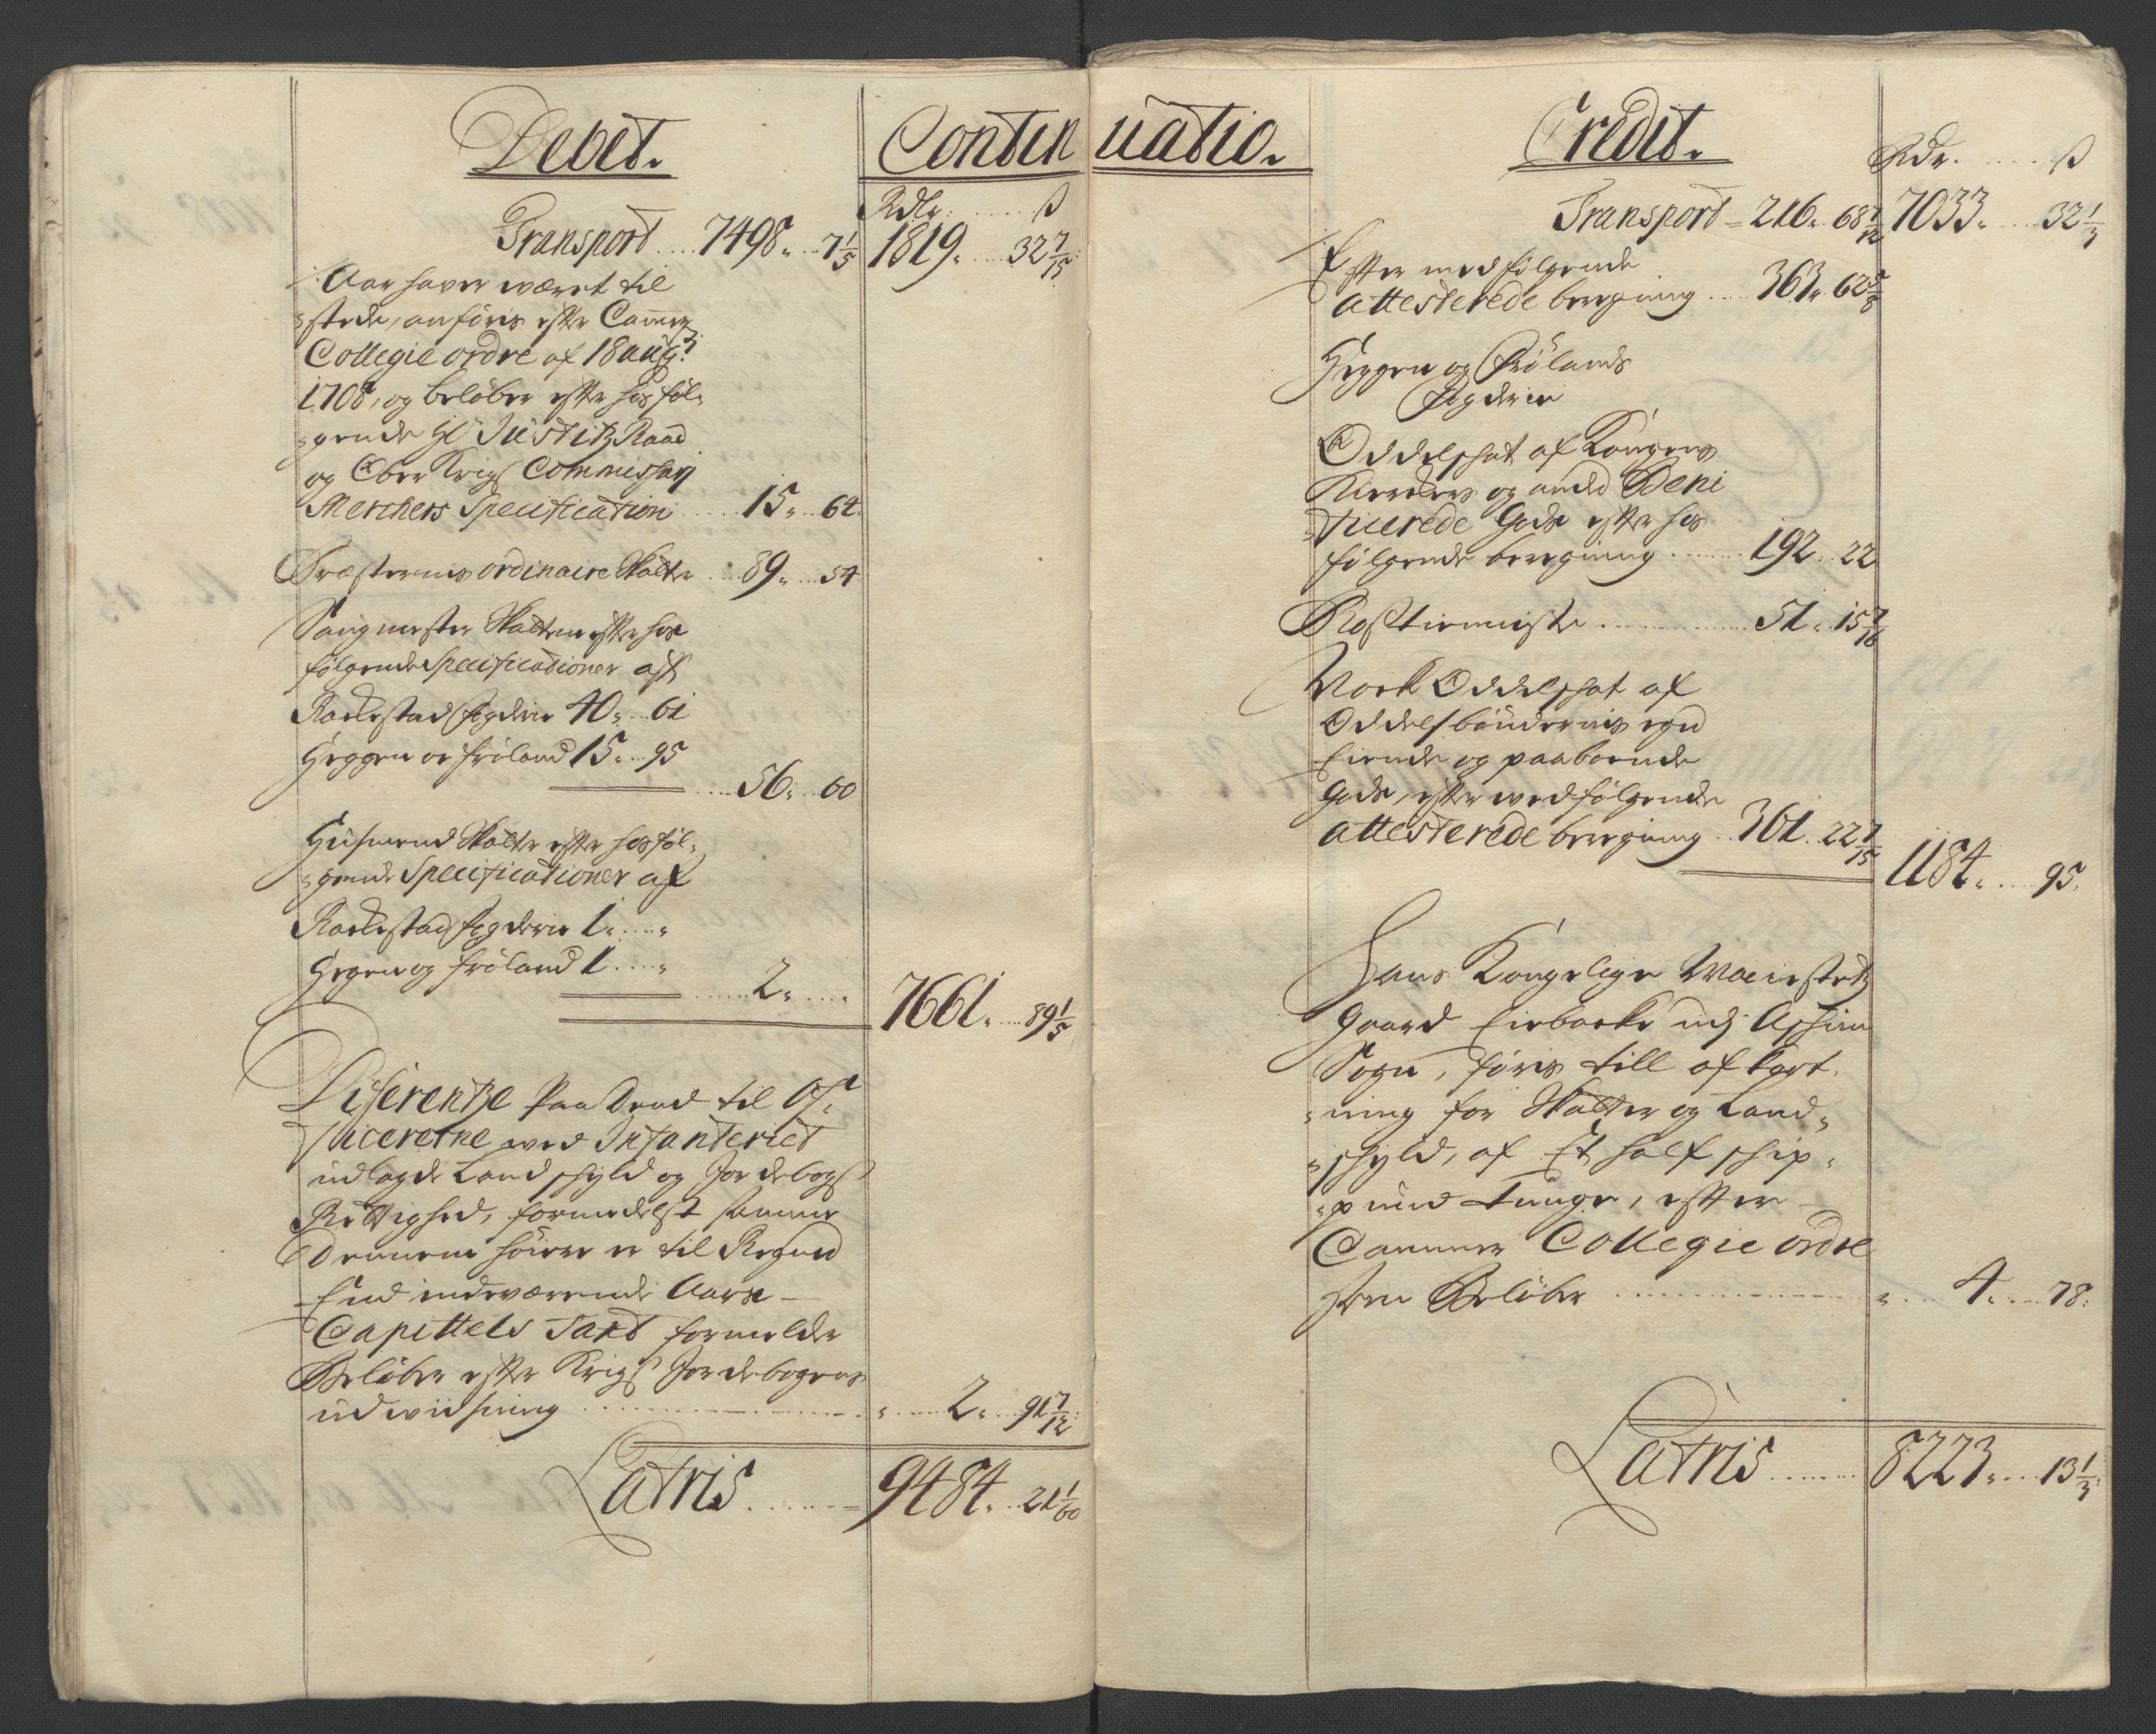 Debet.
Contin
Rdlr. ß
Transport 7498. 7 1/5 1819. 32 7/15
Aar haver wæret til
stede, anføris efter Camer
Collegie ordre af 18 aug:
1708, og beløber efter hosføl-
gende Hr Justitz Raad
og Ober Krigs Commissari
Merchers Specification 15. 64.
Præsternis ordinaire Skatter 89. 54
Saugmester Skatten efter hos
følgende Specificationer aff
Rackestad fogderie 40. 61
Heggen oc frøland 15. 95
56. 60
Huusmend Skatter efter hosføl-
gende Specificationer af
Rackestad fogderie 1. "
Heggen og frøland 1. "
2. "
7661. 89 1/5
Diferentze paa dend til Of-
ficererne ved Infanteriet
udlagde Landschyld og Jordebogs
Rettighed, formedelst samme
dennem høiere er til Regned
End indeværende Aars
Capittels Taxt formelder
Beløber efter Krigs Jordebogens
udviisning 2. 91 7/12
Latris 9484. 21 1/60
uatio.
Credit.
Rdr. ß
Transport 216. 68 7/12 7033. 32 1/3
Efter medfølgende
attesterede beregning 363. 62 5/8
Heggen og Frølands
fogderie
Oddelschat af Kongens
Kierckens og andet Beni
ficerede Gods efter hos
følgende beregning 192. 22
Rosstienniste 51. 15 7/16
Noch Oddelschat af
Oddelsbøndernis egen
Eiende og paaboende
Gods, efter medfølgende
attesterede beregning 361. 22 7/15
1184. 95.
Hans Kongelige Maiestets
Gaard Eiebacke udj Aschim
Sogn, føris till afkort-
ning for Skatter og Land-
schyld, af Et half schip-
pund Tunge, efter
Cammer Collegie ordre
som Beløber 4. 78.
Latris 8223. 13 1/3